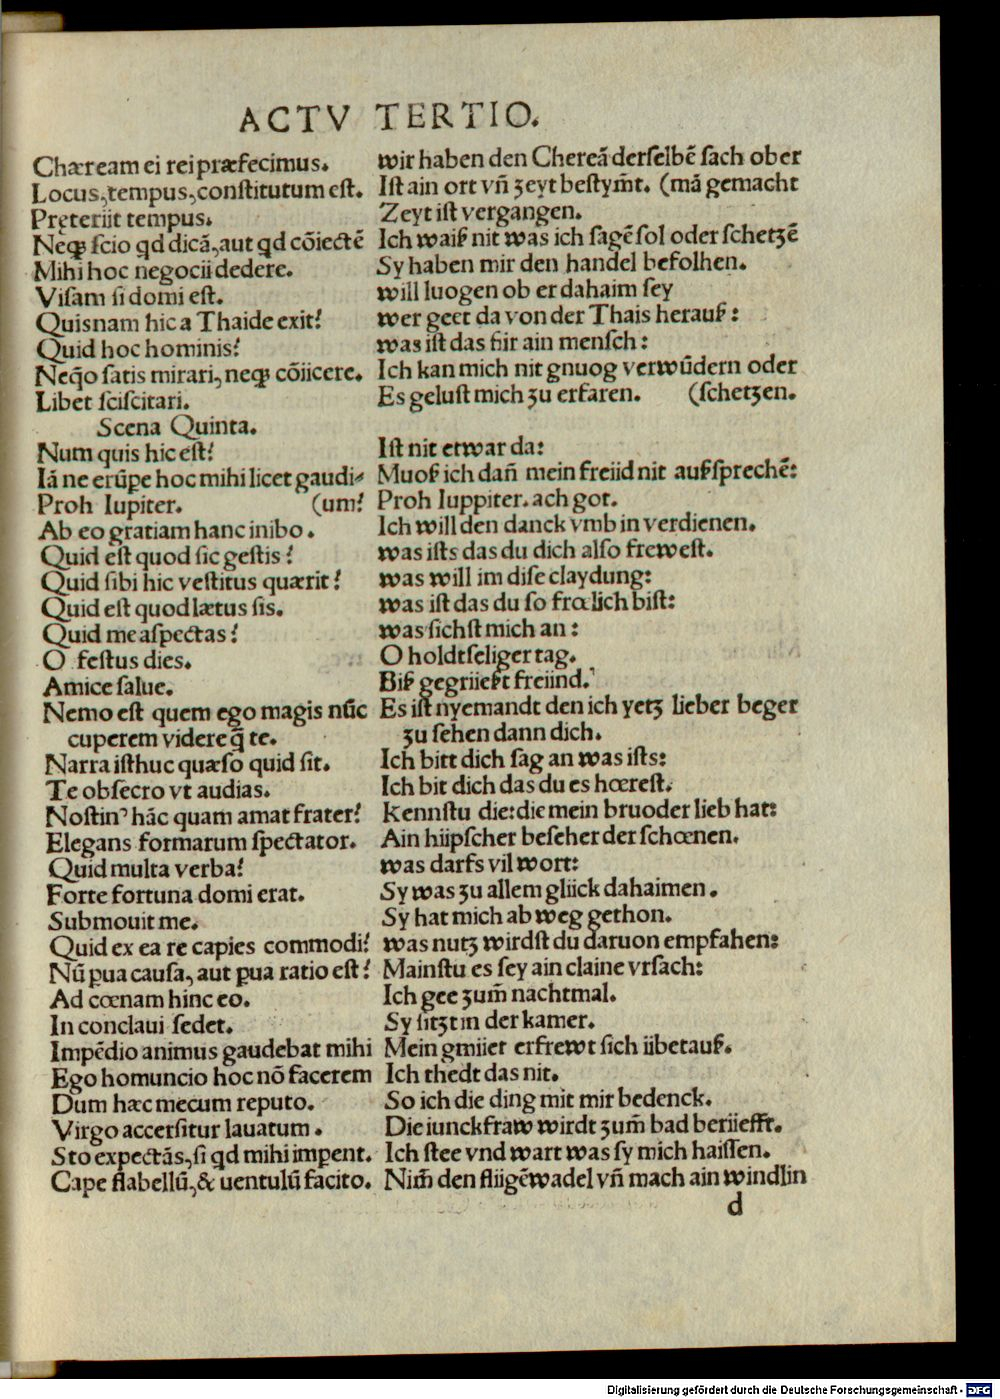 ACTV TERTIO.
Chæream ei rei præfecimus. wir haben den Chereā derselbē sach ober
Locus, tempus, constitutum est. Ist ain ort vn̄ zeyt bestym̄t. (mā gemacht
Pręteriit tempus. Zeyt ist vergangen.
Neqꝫ scio qd dicā, aut qd cōiectē Ich waiß nit was ich sagē sol oder schetzē
Mihi hoc negocii dedere. Sy haben mir den handel befolhen.
Visam si domi est. will luogen ob er dahaim sey
Quisnam hic a Thaide exit? wer geet da von der Thais herauß:
Quid hoc hominis? was ist das für ain mensch:
Neq̄o satis mirari, neqꝫ cōiicere. Ich kan mich nit gnuog verwūdern oder
Libet sciscitari. Es gelust mich zu erfaren. (schetzen.
Scena Quinta.
Num quis hic est? Ist nit etwar da:
Iā ne erūpe hoc mihi licet gaudi⸗ Muoß ich dañ mein freiid nit außsprechē:
Proh Iupiter. (um? Proh Iuppiter. ach got.
Ab eo gratiam hanc inibo. Ich will den danck vmb in verdienen.
Quid est quod sic gestis? was ists das du dich also frewest.
Quid sibi hic vestitus quærit? was will im dise claydung:
Quid est quod lætus sis. was ist das du so frœlich bist:
Quid me aspectas? was sichst mich an:
O festus dies. O holdtseliger tag.
Amice salue. Biß gegriießt freiind.
Nemo est quem ego magis nūc Es ist nyemandt den ich yetz lieber beger
cuperem videre q̄ te. zu sehen dann dich.
Narra isthuc quæso quid sit. Ich bitt dich sag an was ists:
Te obsecro vt audias. Ich bit dich das du es hœrest.
Nostin' hāc quam amat frater? kennstu die: die mein bruoder lieb hat:
Elegans formarum spectator. Ain hiipscher beseher der schœnen.
Quid multa verba? was darfs vil wort:
Forte fortuna domi erat. Sy was zu allem gliick dahaimen.
Submouit me. Sy hat mich ab weg gethon.
Quid ex ea re capies commodi? was nutz wirdst du daruon empfahen:
Nū ꝑua causa, aut ꝑua ratio est? Mainstu es sey ain claine vrsach:
Ad cœnam hinc eo. Ich gee zum̄ nachtmal.
In conclaui sedet. Sy sitzt in der kamer.
Impēdio animus gaudebat mihi Mein gmiiet erfrewt sich iibetauß.
Ego homuncio hoc nō facerem Ich thedt das nit.
Dum hæc mecum reputo. So ich die ding mit mir bedenck.
Virgo accersitur lauatum. Die iunckfraw wirdt zum̄ bad beriiefft.
Sto expectās, si qd mihi imꝑent. Ich stee vnd wart was sy mich haissen.
Cape flabellū, & uentulū facito. Nim̄ den fliigēwadel vn̄ mach ain windlin
d
Digitalisierung gefördert durch die Deutsche Forschungsgemeinschaft - DFG